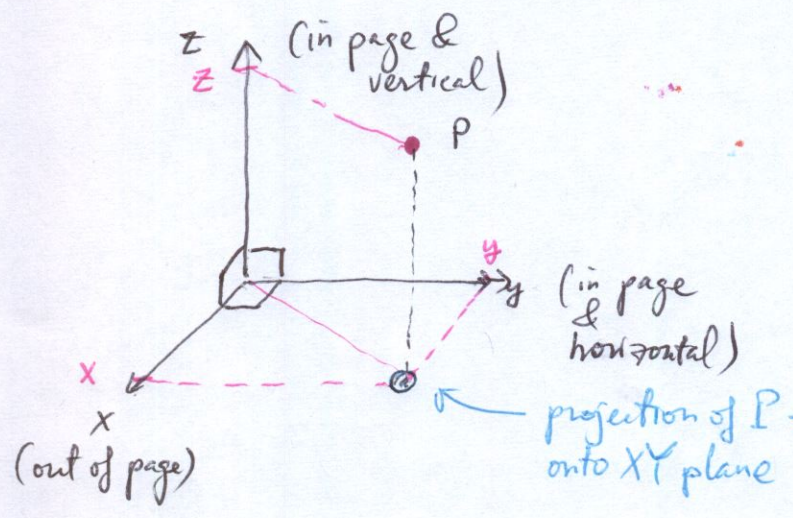 z (in page &
z vertical)
P
y
y (in page
&
horizontal)
x
x
(out of page)
projection of P
onto XY plane